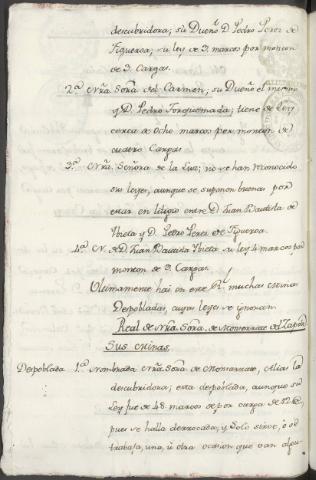 descubridora; su Dueño D. Pedro Perez de
Figueroa; su ley de 3 marcos por monton
de 3. Cargas.
2.ª Ntrã Sorã. del Carmen; su Dueño el mesmo
y D. Pedro Torquemada; tiene de Ley
cerca de ocho marcos por monton de
cuatro Cargas
3.ª Ntrã Señora de la Luz; no se han reconocido
sus leyes, aunque se suponen buenas por
estar en litigio entre D. Juan Bautista de
Ybieta y D. Pedro Perez de Figueroa.
4.ª N. de D. Juan Bautista Ybieta su ley 4 marcos por
monton de 3 Cargas.
Ultimamente hai en este Rl. muchas minas
Despobladas, cuyas leyes se ignoran.
Real de Ntrã. Sorã. de Monserrate del
Sus Minas.
Despoblada 1.ª Nombrada Ntrã Sorã de Monserrate, Alias la
descubridora; esta despoblada, aunque su
Ley fue de 48. marcos de por carga de
pues se halla derrocada, y solo sirve, o se
trabaja, una, ù otra ocasion que van algu-